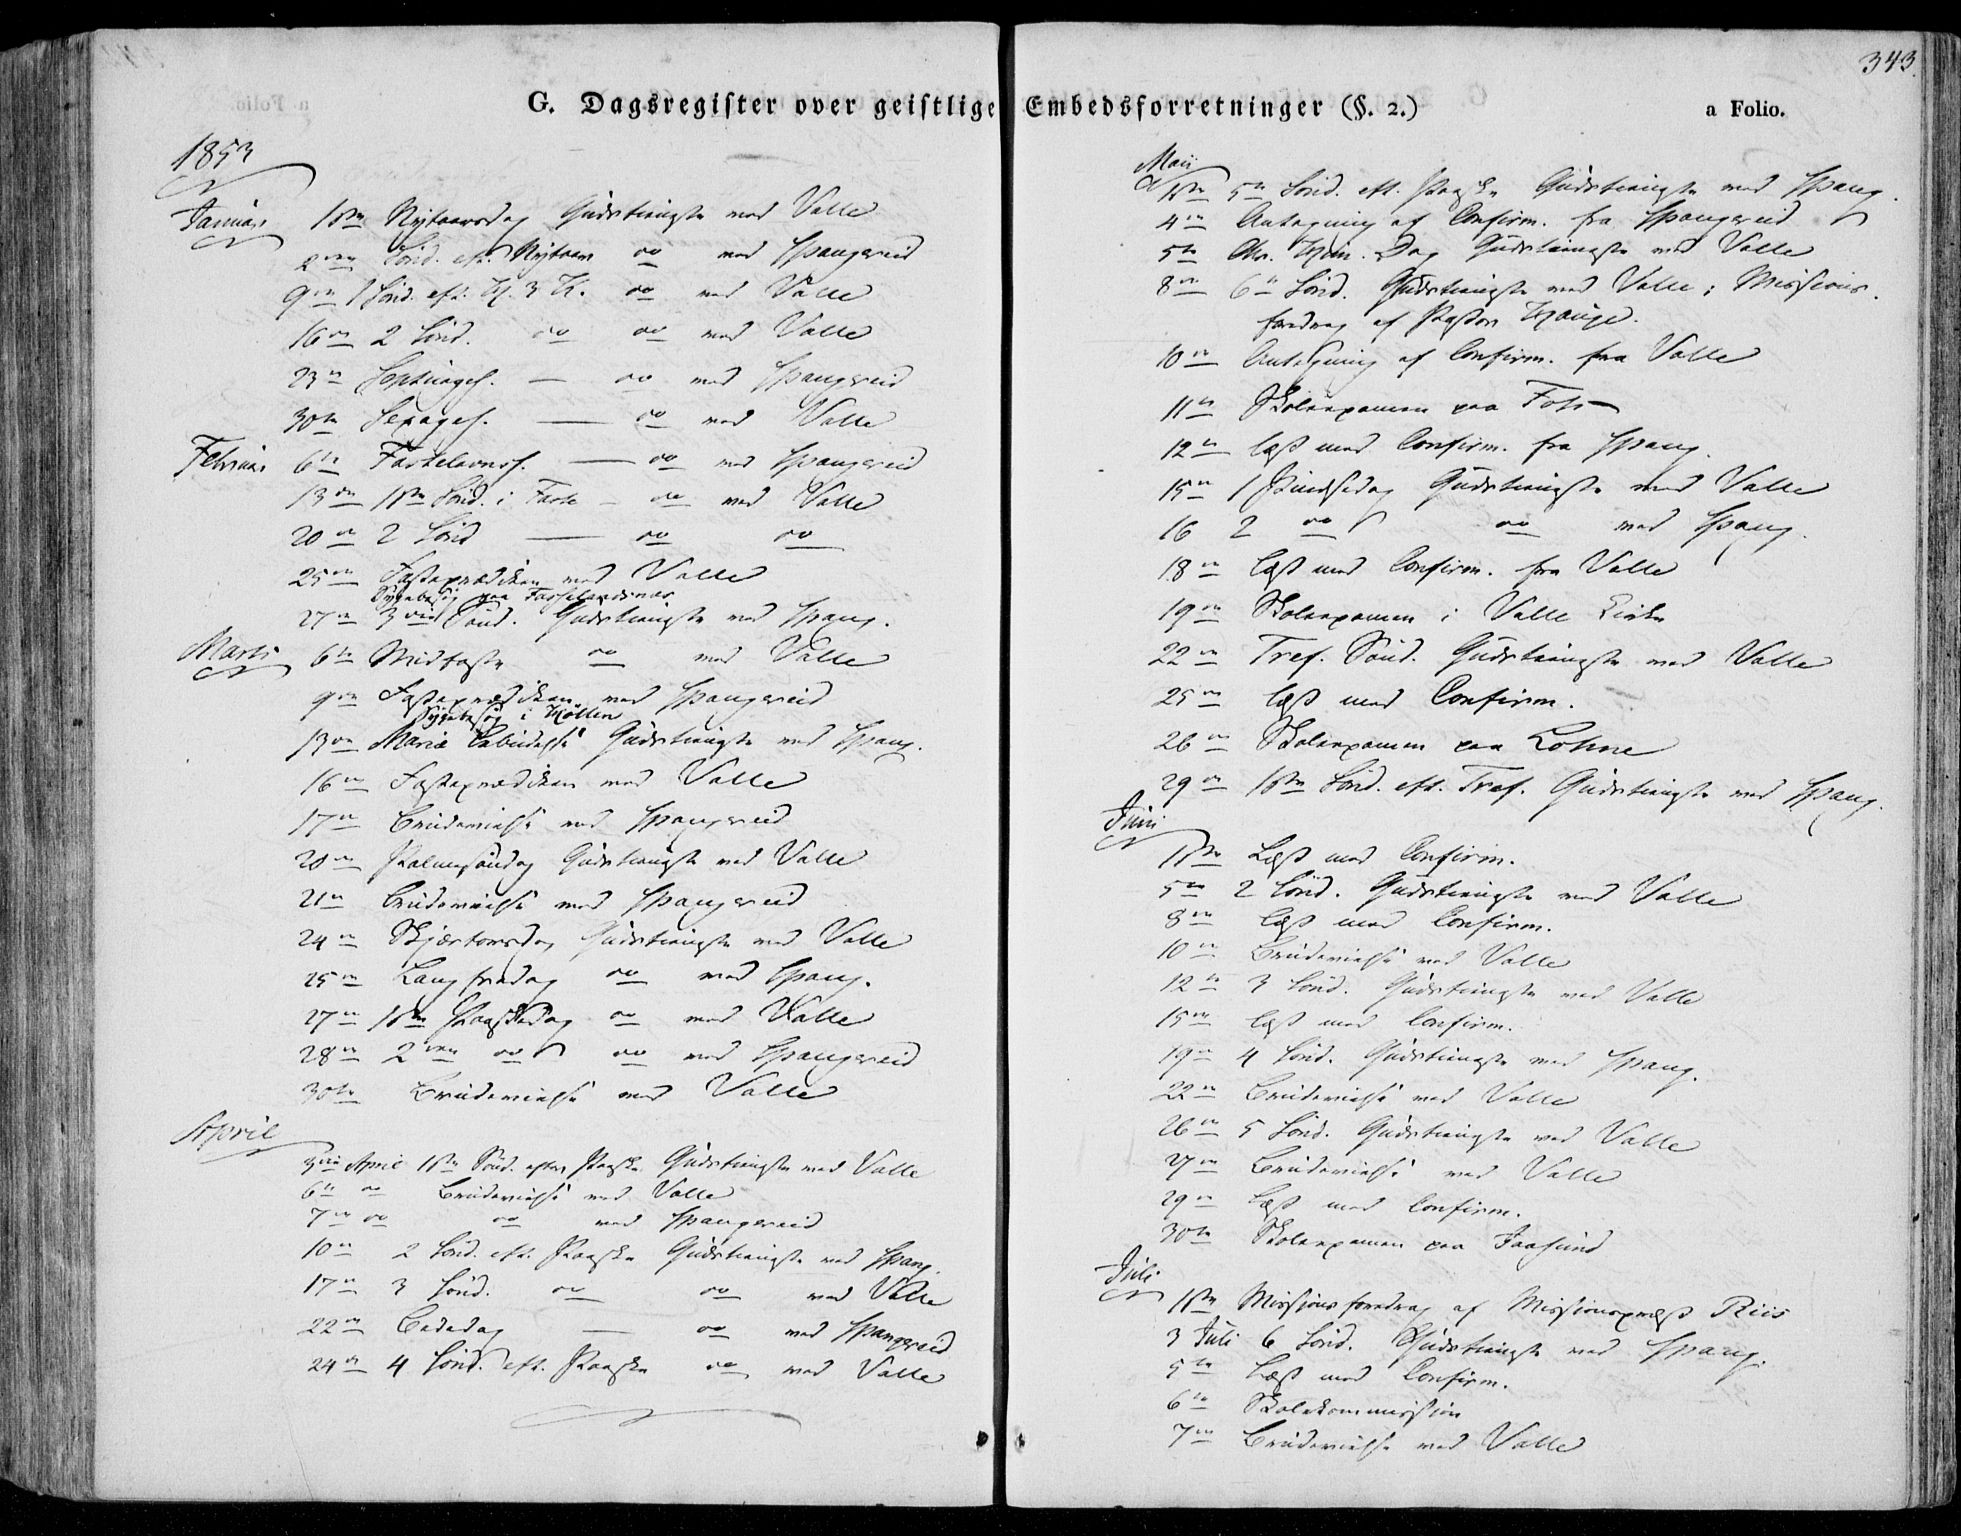 343.
G. Dagsregister over geistlige Embedsforretninger (§. 2.)
a Folio.
1853
Januar 1ste Nytaarsdag Gudstieneste ved Valle
2den Sönd. eft. Nytaar do ved Spangereid
9de 1 Sönd. eft. H. 3 K. do ved Valle
16de 2 Sönd. do do ved Valle
23de Septuages. — do ved Spangereid
30te Sexages. — do ved Valle
Februar 6te Fastelavnss. — do ved Spangereid
13de 1ste Sönd. i Faste — do ved Valle
20de 2 Sönd — do do
25de Fasteprædiken ved Valle
Sygebesög paa
27de 3die Sönd. Gudstieneste ved Spang.
Marts 6te Midfaste do ved Valle
9de Fasteprædiken ved Spangereid
Sygebesög i
13de Mariæ Bebudelse Gudstieneste ved Spang.
16de Fasteprædiken ved Valle
17de Brudevielse ved Spangereid
20de Palmesöndag Gudstieneste ved Valle
21de Brudevielse ved Spangereid
24de Skjærtorsdag Gudstieneste ved Valle
25de Langfredag do ved Spang.
27de 1ste Paaskedag do ved Valle
28de 2den do do ved Spangereid
30te Brudevielse ved Valle
April
3die April 1ste Sönd. efter Paaske Gudstieneste ved Valle
6te do Brudevielse ved Valle
7de do do ved Spangereid
10de 2 Sönd. eft. Paaske Gudstieneste ved Spang.
17de 3 Sönd. do do ved Valle
22de Bededag — do ved Spangereid
24de 4 Sönd. eft. Paaske do ved Valle
Mai
1ste 5te Sönd. eft. Paaske Gudstieneste ved Spang.
4de Antegning af Confirm. fra Spangereid
5te Chr. Him. Dag Gudstieneste ved Valle
8de 6te Sönd. Gudstieneste ved Valle; Missions-
foredrag af Pastor Hauge.
10de Antegning af Confirm. fra Valle
11te Skoleexamen paa Foss
12te læst med Confirm. fra Spang.
15de 1 Pindsedag Gudstieneste ved Valle
16 2 do do ved Spang.
18de læst med Confirm. fra Valle
19de Skoleexamen i Valle Kirke
22de Tref. Sönd. Gudstieneste ved Valle
25de læst med Confirm.
26de Skoleexamen paa Lohne
29de 1ste Sönd. eft. Tref. Gudstieneste ved Spang.
Juni
1ste Læst med Confirm.
5te 2 Sönd. Gudstieneste ved Valle
8de læst med Confirm.
10de Brudevielse ved Valle
12te 3 Sönd. Gudstieneste ved Valle
15de læst med Confirm.
19de 4 Sönd. Gudstieneste ved Spang.
22de Brudevielse ved Valle
26de 5 Sönd. Gudstieneste ved Valle
27de Brudevielse ved Valle
29de Læst med Confirm.
30te Skoleexamen paa Jaasund
Juli
1ste Missionsforedrag af Missionspræst Riis
3 Juli 6 Sönd. Gudstieneste ved Spang.
5te Læst med Confirm.
6te Skolekommission
7de Brudevielse ved Valle